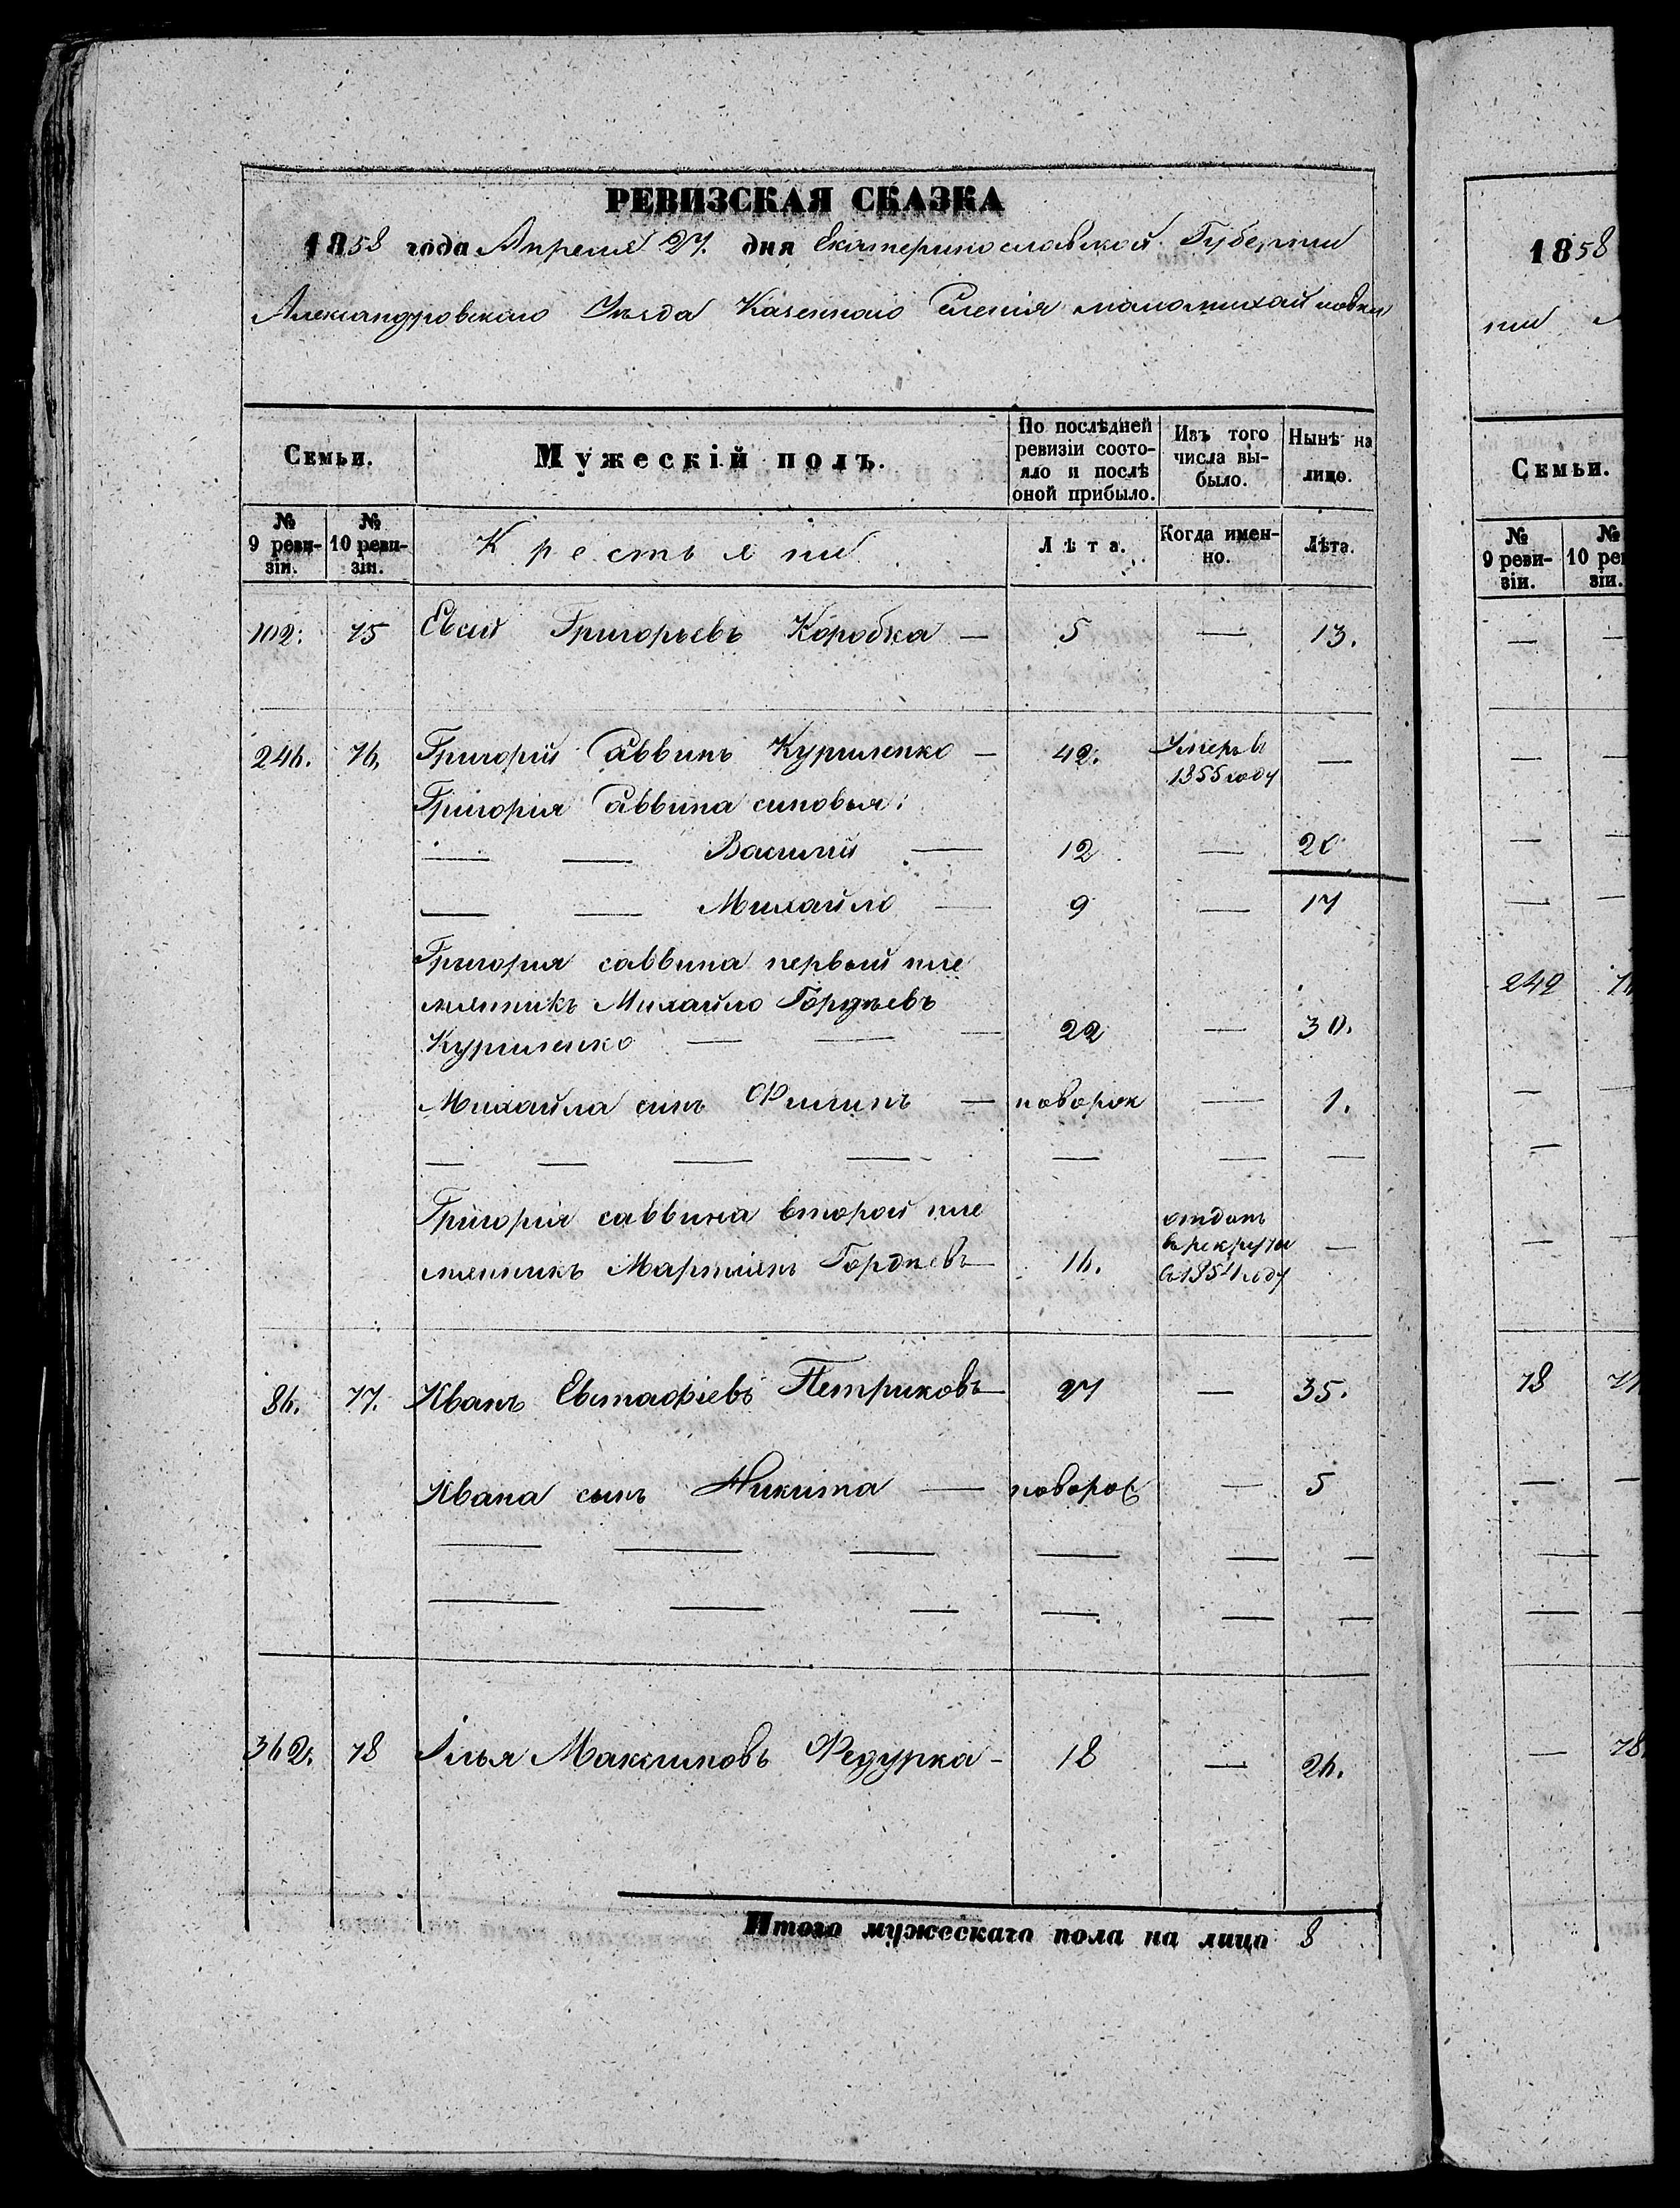 РЕВИЗСКАЯ СКАЗКА
1858 года Апреля 27. дня Екатеринославской Губернии
Александровского Уезда Казенного Селения маломихайловки
Семьи.
Мужескій полъ.
По послѣдней ревизіи состо-яло и послѣ оной прибыло.
Изъ того числа вы-было.
Нынѣ на лицо.
№ 9 реви-зіи.
№ 10 реви-зіи.
Крестьяни
Лѣта.
Когда имен-но.
Лѣта.
102. 75 Евсій Григорьевъ Коробка — 5 — 13.
246. 76. Григорій Саввинъ Куриленко — 42. Умеръ в 1855 году —
Григорія Саввина синовья:
— — Василий — 12 — 20
— — Михайло — 9 — 17
Григория саввина первый пле
мянникъ Михайло Гордѣевъ
Куриленко — — — 22 — 30.
Михайла синъ Филипъ — новорож — 1.
— — — — — — —
Григорія саввина второй пле
мянникъ Мартинъ Гордѣевъ — 16. отданъ в рекруты в 1854 году —
86. 77. Иванъ Евстафіевъ Петриковъ — 27 — 35.
Ивана сынъ Никита — новорож — 5
— — — — — —
— — — — — —
362. 78 Илья Максимовъ Федурка - 18 — 26.
Итого мужескаго пола на лицо 8
1858
нии
Семьи.
№ 9 реви-зіи.
№ 10 ре зіи.
— —
— —
— —
— —
242
— —
—
— —
78
— —
—
— —
— 78